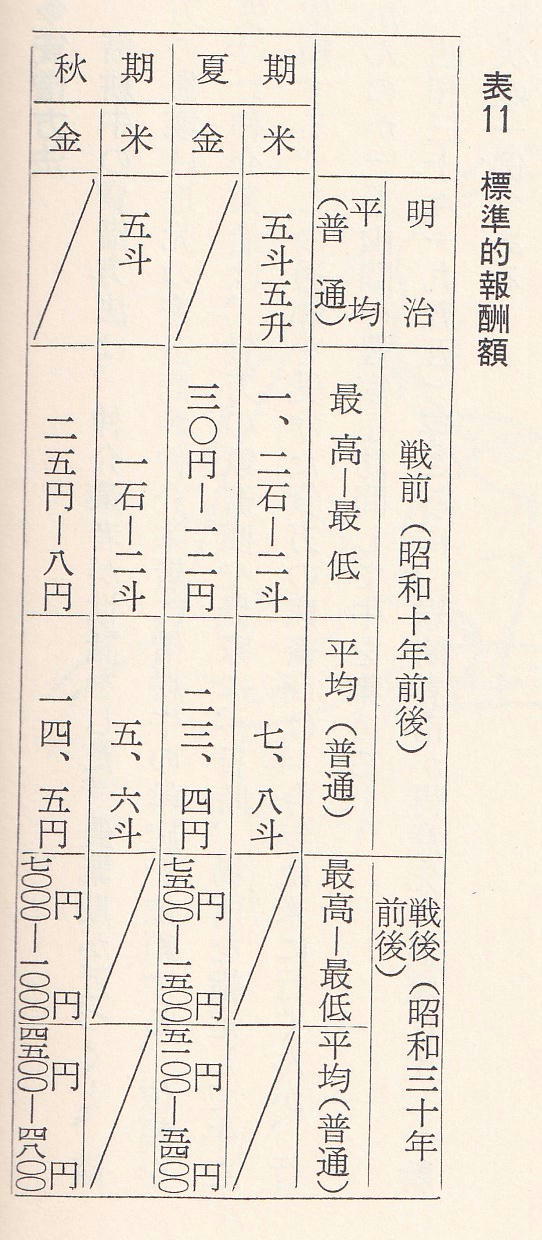 表11 標準的報酬額
明治
戦前（昭和十年前後）
戦後（昭和三十年
前後）
平均
（普通）
最高―最低
平均（普通）
最高―最低
平均（普通）
夏期
米
五斗五升
一、二石―二斗
七、八斗
金
三〇円―一二円
二三、四円
七五〇〇円―一五〇〇円
五一〇〇円―五四〇〇円
秋期
米
五斗
一石―二斗
五、六斗
金
二五円―八円
一四、五円
七〇〇〇円―一〇〇〇円
四五〇〇円―四八〇〇円